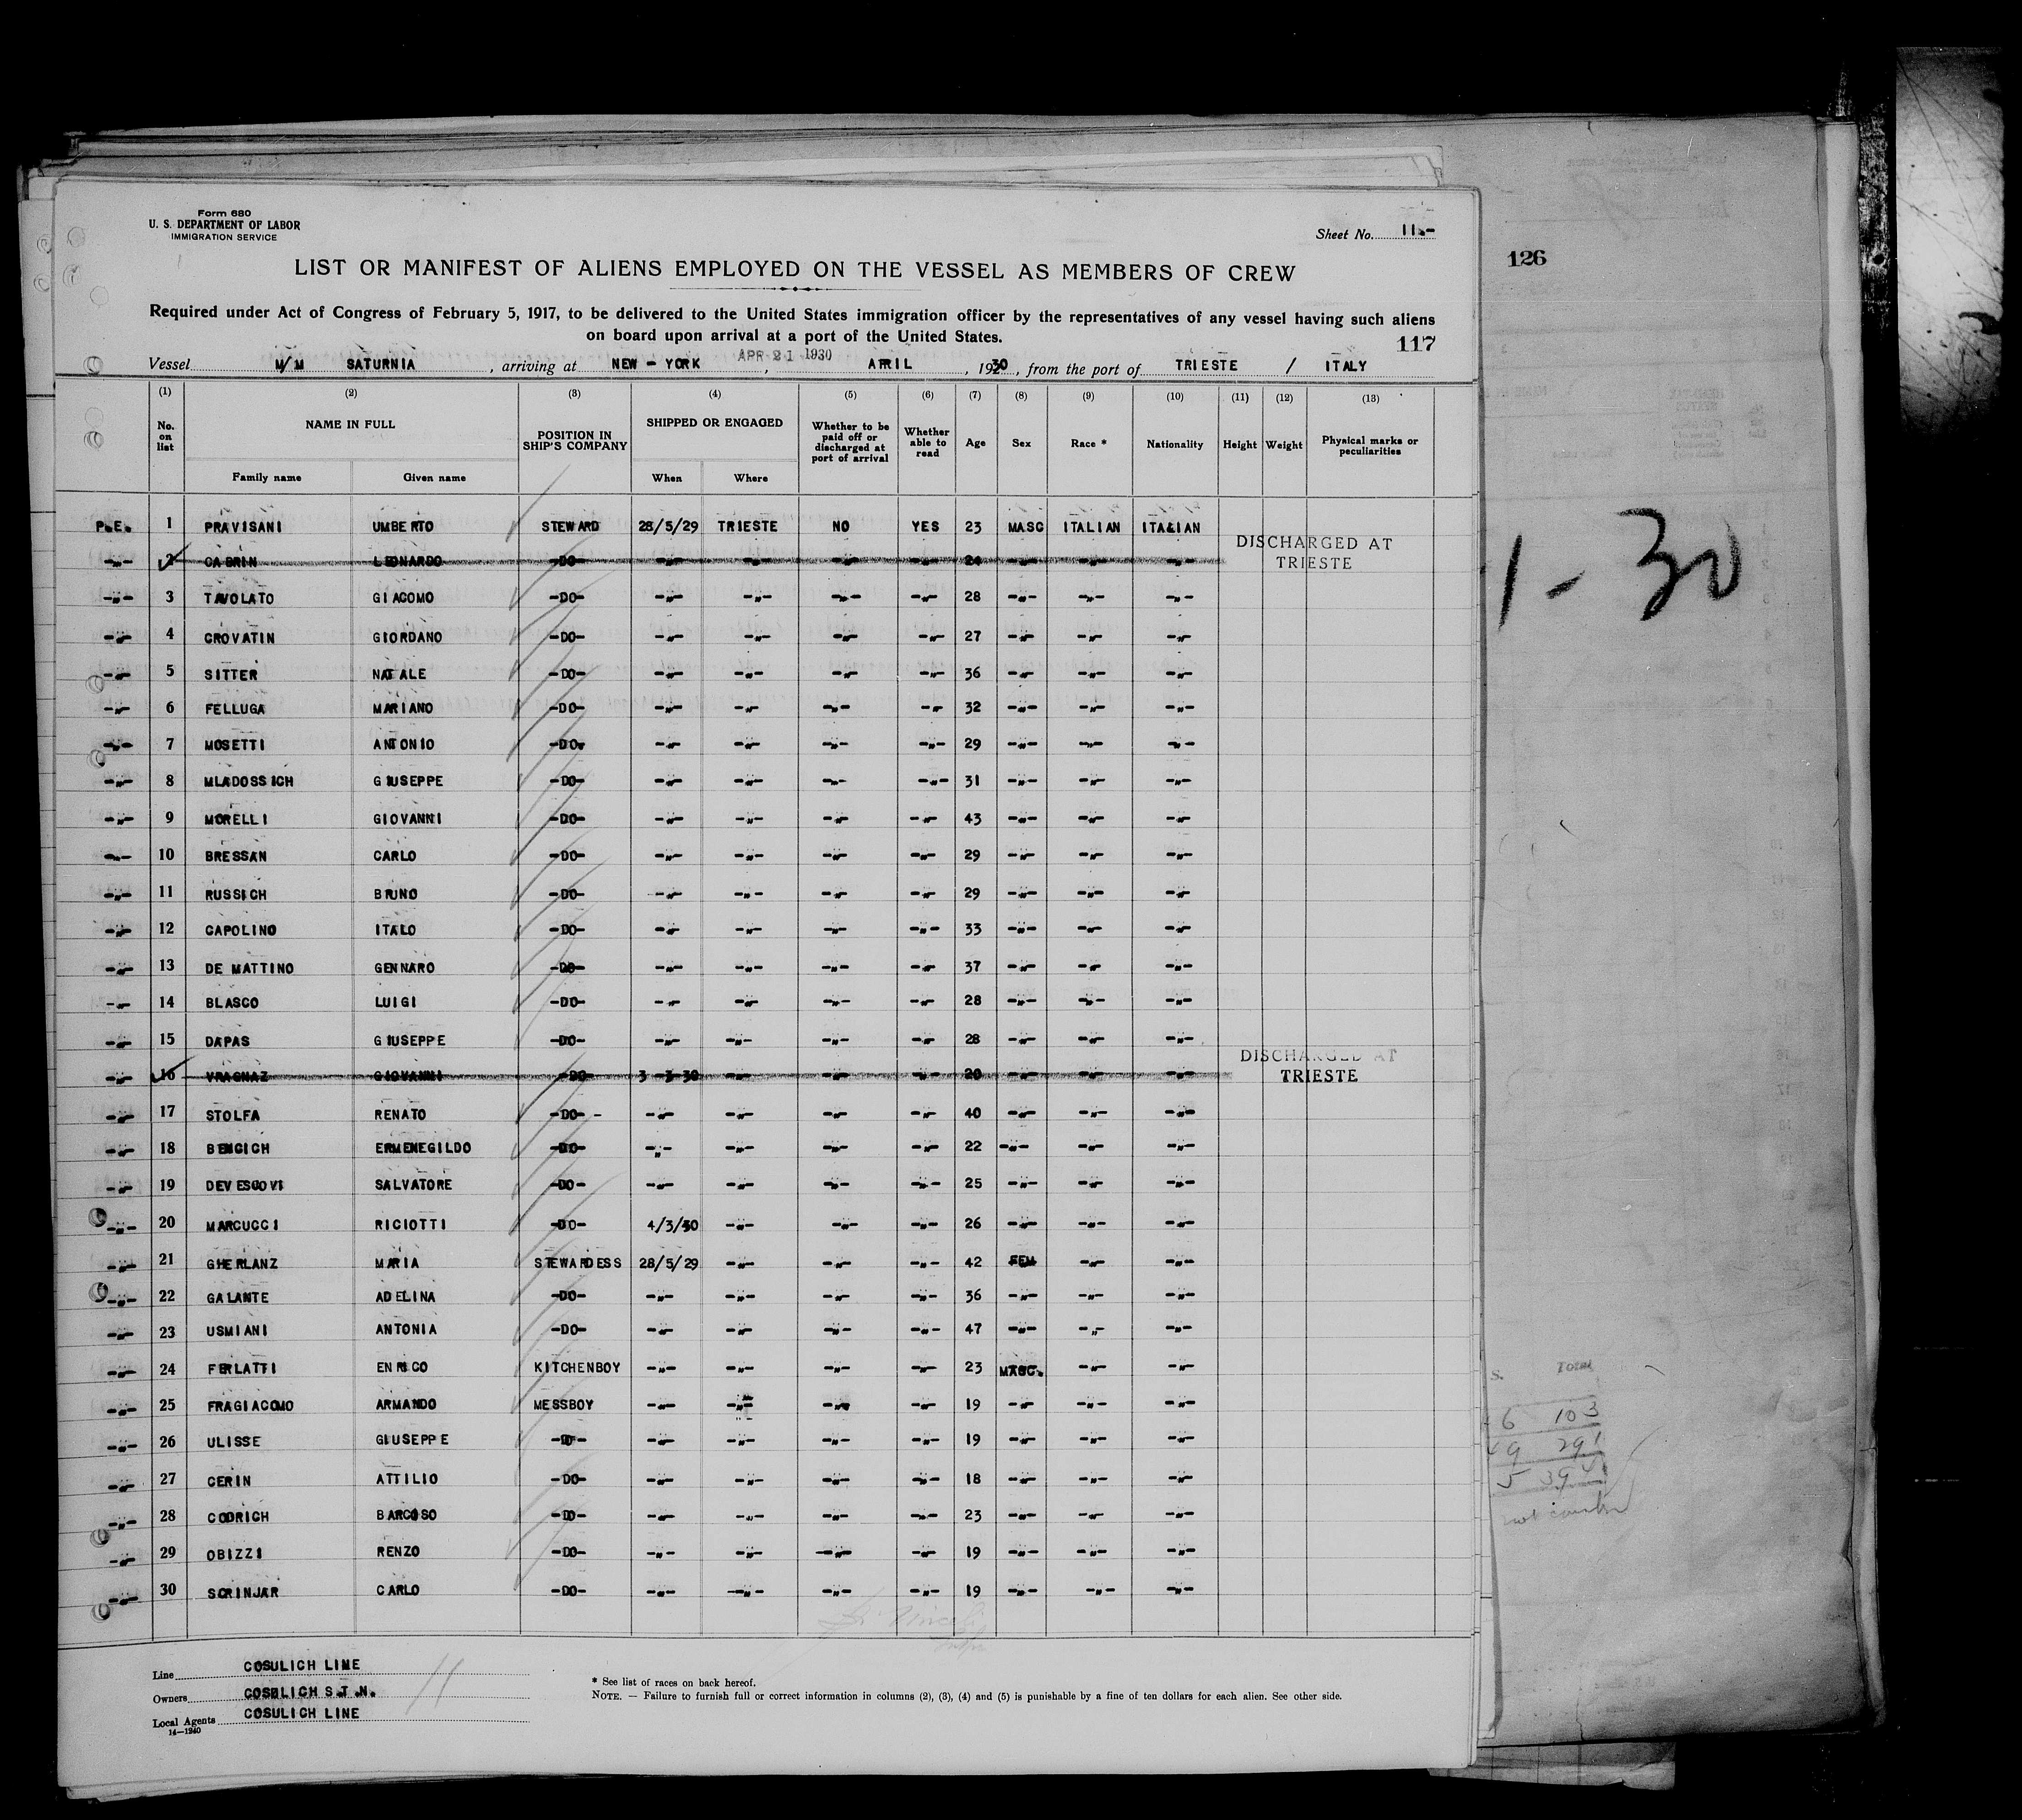 Form 680
U. S. DEPARTMENT OF LABOR
IMMIGRATION SERVICE
Sheet No. 11.-
LIST OR MANIFEST OF ALIENS EMPLOYED ON THE VESSEL AS MEMBERS OF CREW
Required under Act of Congress of February 5, 1917, to be delivered to the United States immigration officer by the representatives of any vessel having such aliens
on board upon arrival at a port of the United States.
117
Vessel M/M SATURNIA, arriving at NEW - YORK APR 21 1930, APRIL, 1930, from the port of TRIESTE / ITALY
(1) (2) (3) (4) (5) (6) (7) (8) (9) (10) (11) (12) (13)
No. on list NAME IN FULL POSITION IN SHIP'S COMPANY SHIPPED OR ENGAGED Whether to be paid off or discharged at port of arrival Whether able to read Age Sex Race * Nationality Height Weight Physical marks or peculiarities
Family name Given name When Where
P.E. 1 PRAVISANI UMBERTO STEWARD 28/5/29 TRIESTE NO YES 23 MASC ITALIAN ITALIAN
-"- 2 CABRIN LEONARDO -DO- -"- -"- -"- -"- 24 -"- -"- -"- DISCHARGED AT TRIESTE
-"- 3 TAVOLATO GIACOMO -DO- -"- -"- -"- -"- 28 -"- -"- -"-
-"- 4 CROVATIN GIORDANO -DO- -"- -"- -"- -"- 27 -"- -"- -"-
-"- 5 SITTER NATALE -DO- -"- -"- -"- -"- 36 -"- -"- -"-
-"- 6 FELLUGA MARIANO -DO- -"- -"- -"- -"- 32 -"- -"- -"-
-"- 7 MOSETTI ANTONIO -DO- -"- -"- -"- -"- 29 -"- -"- -"-
-"- 8 MLADOSSICH GIUSEPPE -DO- -"- -"- -"- -"- 31 -"- -"- -"-
-"- 9 MORELLI GIOVANNI -DO- -"- -"- -"- -"- 43 -"- -"- -"-
-"- 10 BRESSAN CARLO -DO- -"- -"- -"- -"- 29 -"- -"- -"-
-"- 11 RUSSICH BRUNO -DO- -"- -"- -"- -"- 29 -"- -"- -"-
-"- 12 CAPOLINO ITALO -DO- -"- -"- -"- -"- 33 -"- -"- -"-
-"- 13 DE MATTINO GENNARO -DO- -"- -"- -"- -"- 37 -"- -"- -"-
-"- 14 BLASCO LUIGI -DO- -"- -"- -"- -"- 28 -"- -"- -"-
-"- 15 DAPAS GIUSEPPE -DO- -"- -"- -"- -"- 28 -"- -"- -"-
-"- 16 VRAGNAZ GIOVANNI -DO- 3 3 30 -"- -"- -"- 20 -"- -"- -"- DISCHARGED AT TRIESTE
-"- 17 STOLFA RENATO -DO- - -"- -"- -"- -"- 40 -"- -"- -"-
-"- 18 BENCICH ERMENEGILDO -DO- -"- -"- -"- -"- 22 -"- -"- -"-
-"- 19 DEVESCOVI SALVATORE -DO- -"- -"- -"- -"- 25 -"- -"- -"-
-"- 20 MARCUCCI RICIOTTI -DO- 4/3/30 -"- -"- -"- 26 -"- -"- -"-
-"- 21 GHERLANZ MARIA STEWARDESS 28/5/29 -"- -"- -"- 42 FEM -"- -"-
-"- 22 GALANTE ADELINA -DO- -"- -"- -"- -"- 36 -"- -"- -"-
-"- 23 USMIANI ANTONIA -DO- -"- -"- -"- -"- 47 -"- -"- -"-
-"- 24 FERLATTI ENRICO KITCHENBOY -"- -"- -"- -"- 23 MASC. -"- -"-
-"- 25 FRAGIACOMO ARMANDO MESSBOY -"- -"- -"- -"- 19 -"- -"- -"-
-"- 26 ULISSE GIUSEPPE -DO- -"- -"- -"- -"- 19 -"- -"- -"-
-"- 27 CERIN ATTILIO -DO- -"- -"- -"- -"- 18 -"- -"- -"-
-"- 28 CODRICH BARCOSO -DO- -"- -"- -"- -"- 23 -"- -"- -"-
-"- 29 OBIZZI RENZO -DO- -"- -"- -"- -"- 19 -"- -"- -"-
-"- 30 SCRINJAR CARLO -DO- -"- -"- -"- -"- 19 -"- -"- -"-
Line COSULICH LINE
Owners COSULICH S.T.N.
Local Agents COSULICH LINE
14—1240
11
* See list of races on back hereof.
NOTE. — Failure to furnish full or correct information in columns (2), (3), (4) and (5) is punishable by a fine of ten dollars for each alien. See other side.
126
1 - 30
S. Total
6 103
49 291
5 394